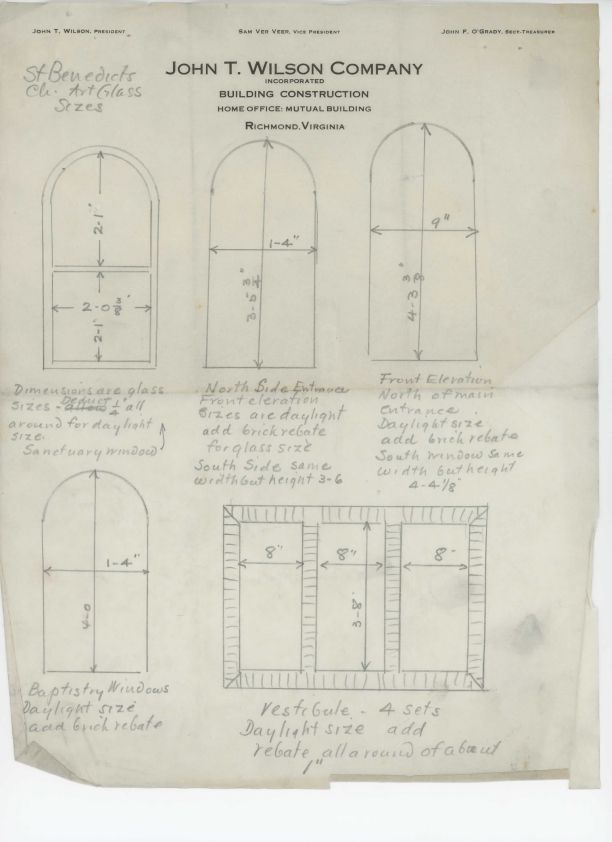 JOHN T. WILSON, PRESIDENT
SAM VER VEER, VICE PRESIDENT
JOHN F. O'GRADY, SECY-TREASURER
JOHN T. WILSON COMPANY
INCORPORATED
BUILDING CONSTRUCTION
HOME OFFICE: MUTUAL BUILDING
RICHMOND, VIRGINIA
St Benedicts
Ch. Art Glass
Sizes
2-1"
2-0 3/8"
2-1"
1-4"
3-5 3/4"
9"
4-3 3/8"
Dimensions are glass
sizes - Deduct allow 1/2" all
around for daylight
size.
Sanctuary window
North Side Entrance
Front elevation
Sizes are daylight
add brick rebate
for glass size
South Side same
width but height 3-6
Front Elevation
North of main
Entrance.
Daylight size
add brick rebate
South window same
width but height
4-4 1/8"
1-4"
4-0
8"
8"
8"
3-8"
Baptistry Windows
Daylight size
add brick rebate
Vestibule - 4 sets
Daylight size add
rebate all around of about
1"